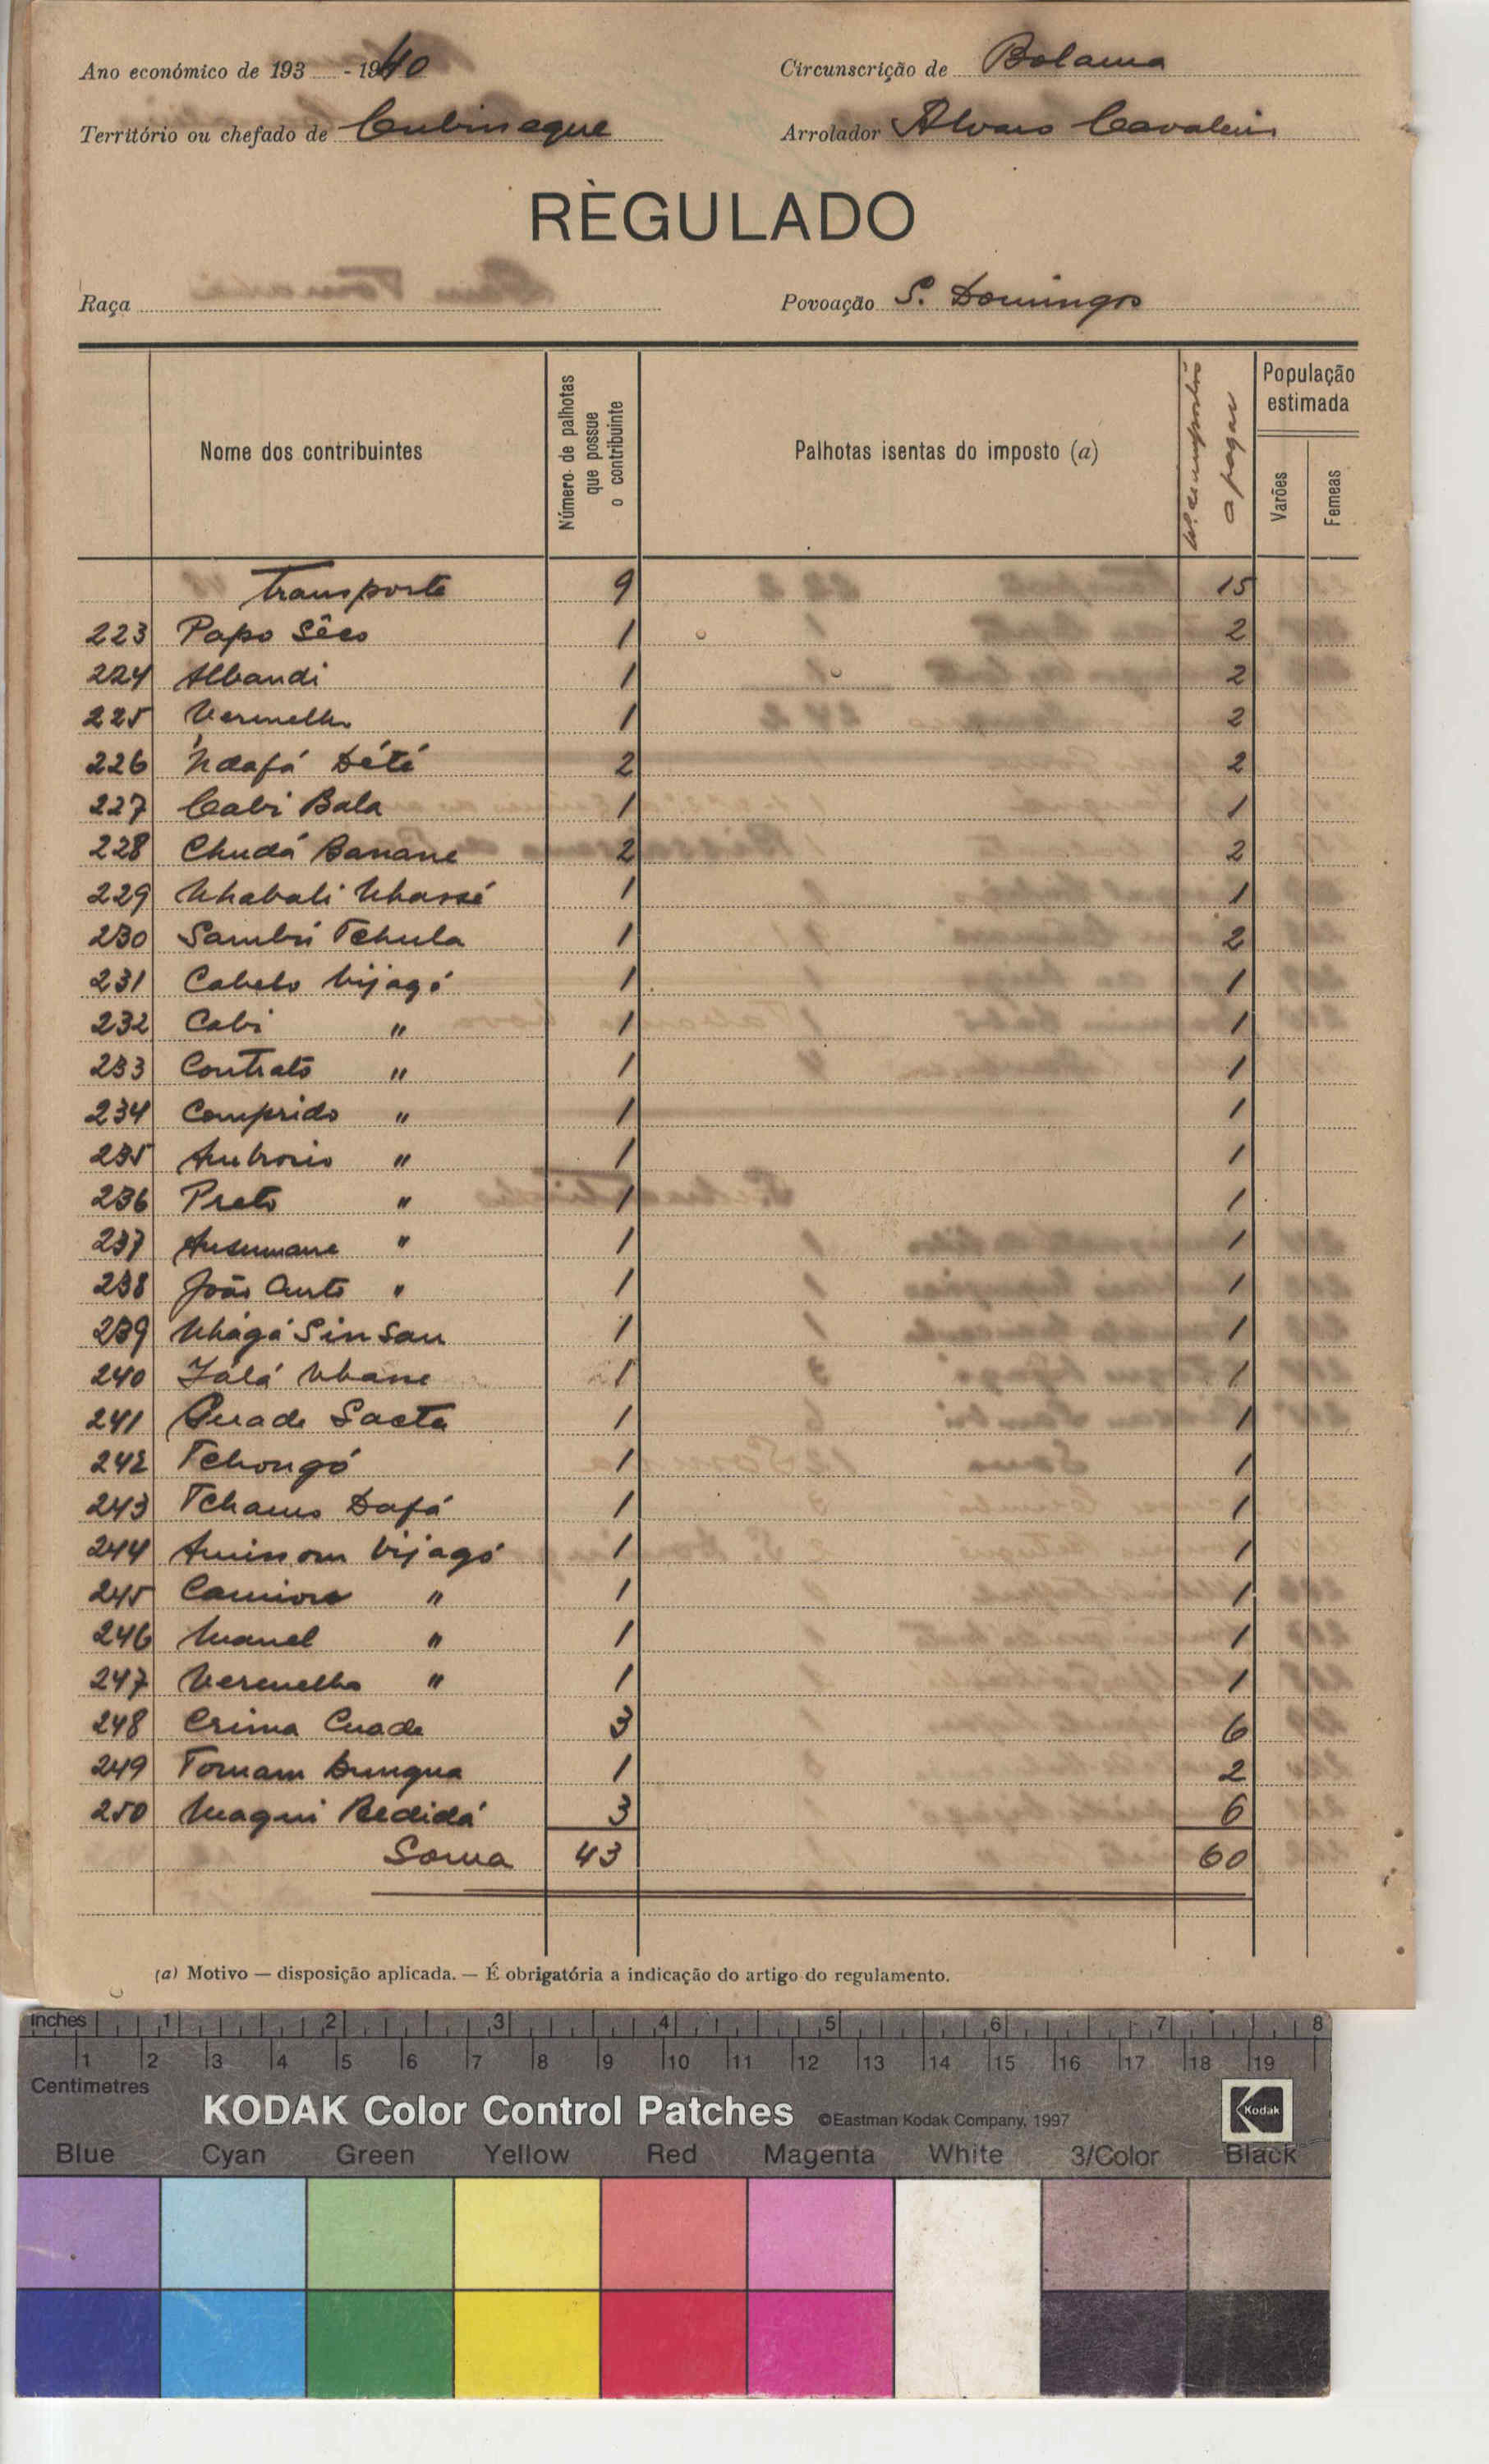 Ano económico de 193 - 1940 Circunscrição de Bolama
Território ou chefado de Cubisseque Arrolador Alvaro Cavaleiro
RÈGULADO
Raça Povoação S. Domingos
Nome dos contribuintes Número de palhotas que possue o contribuinte Palhotas isentas do imposto (a) Nº de impostos a pagar População estimada Varões Femeas
Transporte 9 15
223 Papo Sêco 1 2
224 Albandi 1 2
225 Vermelho 1 2
226 N'dafá Dété 2 2
227 Cabi Bala 1 1
228 Chudá Banane 2 2
229 Nhabali Nhassé 1 1
230 Sambú Tchula 1 2
231 Cabelo bijagó 1 1
232 Cabi " 1 1
233 Contrato " 1 1
234 Comprido " 1 1
235 Ambrosio " 1 1
236 Preto " 1 1
237 Ansumane " 1 1
238 João Curto " 1 1
239 Nhágá Sinsau 1 1
240 Jálá Nhane 1 1
241 Quade Sacta 1 1
242 Tchongó 1 1
243 Tchamo Dafá 1 1
244 bijagó 1 1
245 " 1 1
246 Manel " 1 1
247 Vermelho " 1 1
248 Crima Cuade 3 6
249 Tomam Dungua 1 2
250 Maqui Bedidá 3 6
Soma 43 60
(a) Motivo — disposição aplicada. — É obrigatória a indicação do artigo do regulamento.
inches 1 2 3 4 5 6 7 8
1 2 3 4 5 6 7 8 9 10 11 12 13 14 15 16 17 18 19
Centimetres
KODAK Color Control Patches ©Eastman Kodak Company, 1997 Kodak
Blue Cyan Green Yellow Red Magenta White 3/Color Black